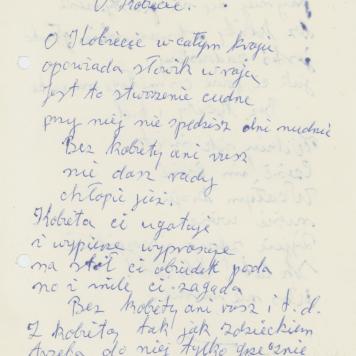 O Kobiecie.
O Kobiecie w całym kraju
opowiada słowik w raju
jest to stworzenie cudne
przy niej nie spędzisz dni nudnie
Bez kobiety ani rusz
nie dasz rady
chłopie już.
Kobieta ci ugotuje
i wypierze wyprasuje
na stół ci obiadek poda
no i mile ci zagada
Bez kobiety ani rusz i t. d.
Z kobietą tak jak z dzieckiem
trzeba do niej tylko grzecznie